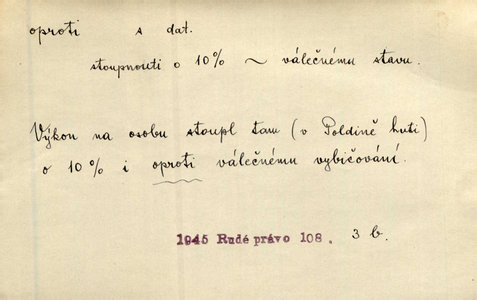 oproti s dat.
stoupnouti o 10% ~ válečnému stavu.
Výkon na osobu stoupl tam (v Poldině huti)
o 10% i oproti válečnému vybičování.
1945 Rudé právo 108. 3 b.